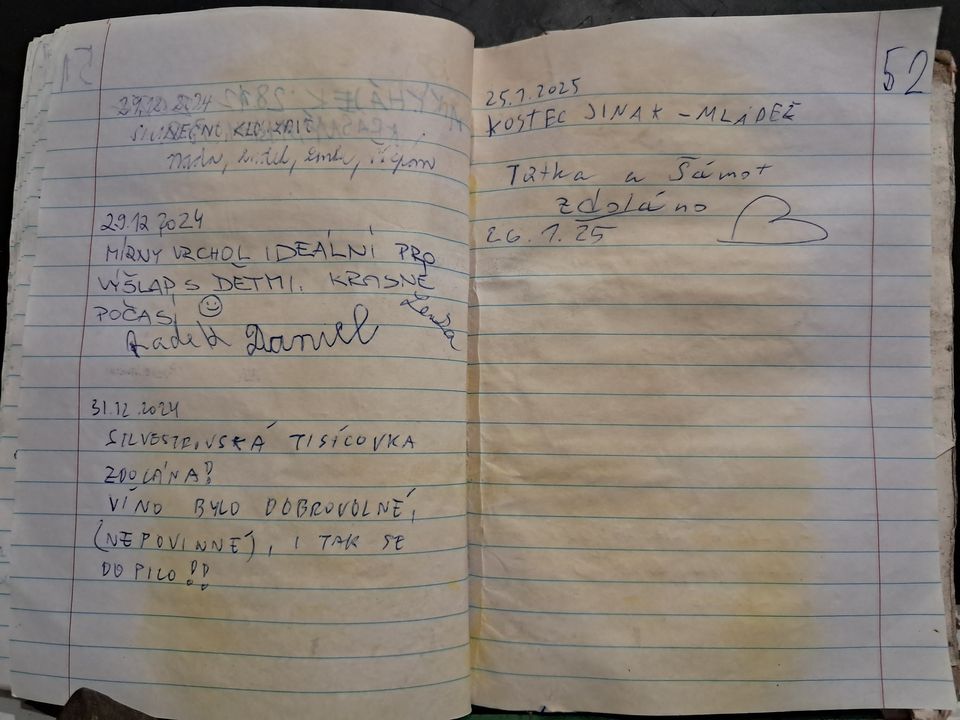 29.12.2024
SLUNEČNO, KLOUZAJÍ
29.12 2024
MÍRNÝ VRCHOL IDEÁLNÍ PRO
VÝŠLAP S DĚTMI. KRASNÉ
POČASÍ
Radek Daniel Lenka
31.12.2024
SILVESTROVSKÁ TISÍCOVKA
ZDOLÁNA!
VÍNO BYLO DOBROVOLNÉ,
(NEPOVINNÉ), I TAK SE
DOPILO!!
52
25.1.2025
KOSTEC JINAK – MLÁDEŽ
Taťka a Šámot
zdoláno
26.1.25